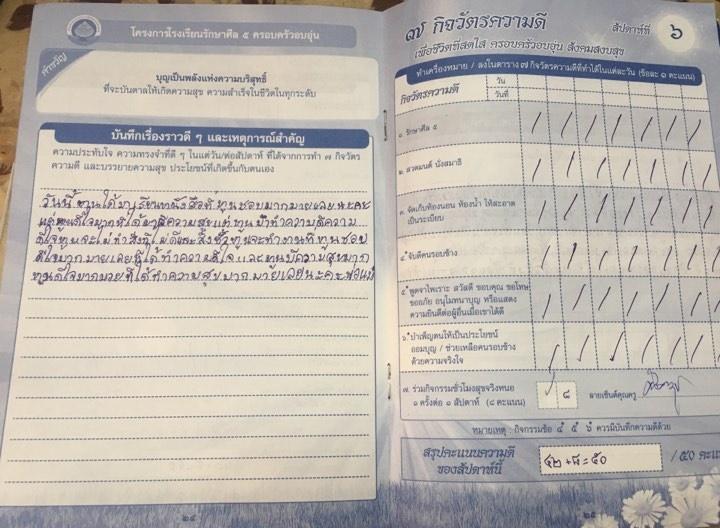 โครงการโรงเรียนรักษาศีล ๕ ครอบครัวอบอุ่น
คำขวัญ
บุญเป็นพลังแห่งความบริสุทธิ์
ที่จะบันดาลให้เกิดความสุข ความสำเร็จในชีวิตในทุกระดับ
บันทึกเรื่องราวดี ๆ และเหตุการณ์สำคัญ
ความประทับใจ ความทรงจำที่ดี ๆ ในแต่วัน/ต่อสัปดาห์ ที่ได้จากการทำ ๗ กิจวัตร
ความดี และบรรยายความสุข ประโยชน์ที่เกิดขึ้นกับตนเอง
วันนี้ หนูได้มาเรียนหนังสือที่หนูชอบมากมายเลย นะคะ
ความดีใจ และหนูมีความสุขมาก
หนูดีใจมากมายที่ได้ทำความสุขมากมายเลยนะคะพ่อแม่
๒๔
๗ กิจวัตรความดี
สัปดาห์ที่ ๖
เพื่อชีวิตที่สดใส ครอบครัวอบอุ่น สังคมสงบสุข
ทำเครื่องหมาย / ลงในตาราง ๗ กิจวัตรความดีที่ทำได้ในแต่ละวัน (ข้อละ ๑ คะแนน)
กิจวัตรความดี
วัน
วันที่
๑. รักษาศีล ๕
๒. สวดมนต์ นั่งสมาธิ
๓. จัดเก็บห้องนอน ห้องน้ำ ให้สะอาด
เป็นระเบียบ
๔. จับดีคนรอบข้าง
๕. พูดจาไพเราะ สวัสดี ขอบคุณ ขอโทษ
ขออภัย อนุโมทนาบุญ หรือแสดง
ความยินดีต่อผู้อื่นเมื่อเขาได้ดี
๖. บำเพ็ญตนให้เป็นประโยชน์
ออมบุญ / ช่วยเหลือคนรอบข้าง
ด้วยความจริงใจ
๗. ร่วมกิจกรรมชั่วโมงสุขจริงหนอ
๑ ครั้งต่อ ๑ สัปดาห์ (๘ คะแนน)
๘
ลายเซ็นต์คุณครู
หมายเหตุ : กิจกรรมข้อ ๔ ๕ ๖ ควรมีบันทึกความดีด้วย
สรุปคะแนนความดี
ของสัปดาห์นี้
๔๒ + ๘ = ๕๐
/ ๕๐ คะแ
๒๕